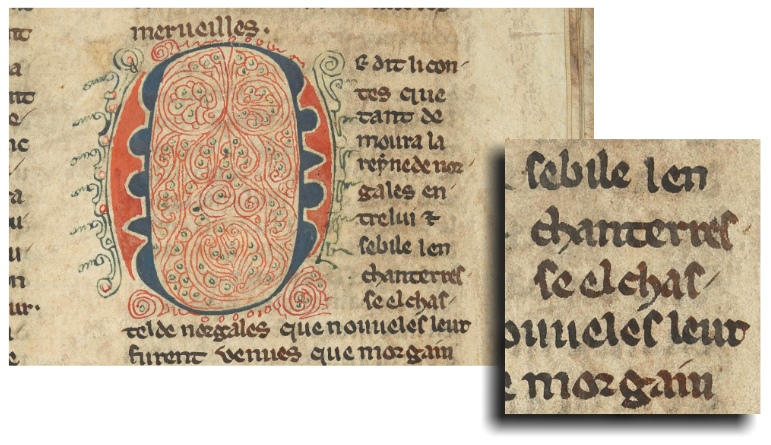 merueilles.
O
R dit li con-
tes que
tant de
moura la
reyne de nor
gales en
tre lui &
sebile len
chanterres
se el chas
tel de norgales que nouueles leur
furent venues que morgain
sebile len
chanterres
se el chas
ouueles leur
e morgain